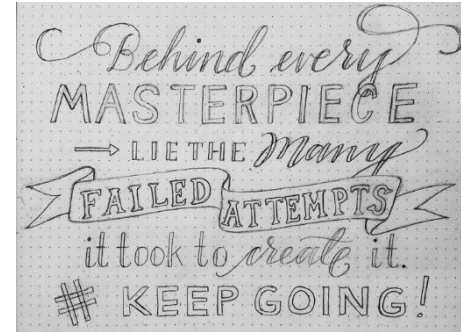 Behind every
MASTERPIECE
→ LIE THE Many
FAILED ATTEMPTS
it took to create it.
# KEEP GOING!